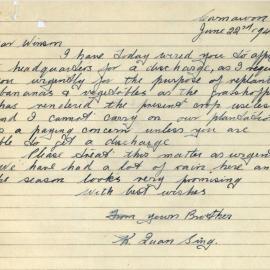 Carnarvon
June 22nd 194
ar Winson
I have today wired you to app
headquarters for a discharge, as I requ
you urgently for the purpose of replant
bananas & vegetables as the grasshopp
has rendered the present crop useless
and I cannot carry on our plantatio
as a paying concern unless you are
ble to get a discharge
Please treat this matter as urgen
We have had a lot of rain here an
the season looks very promising
With best wishes
From your Brother
K. Quan Sing.